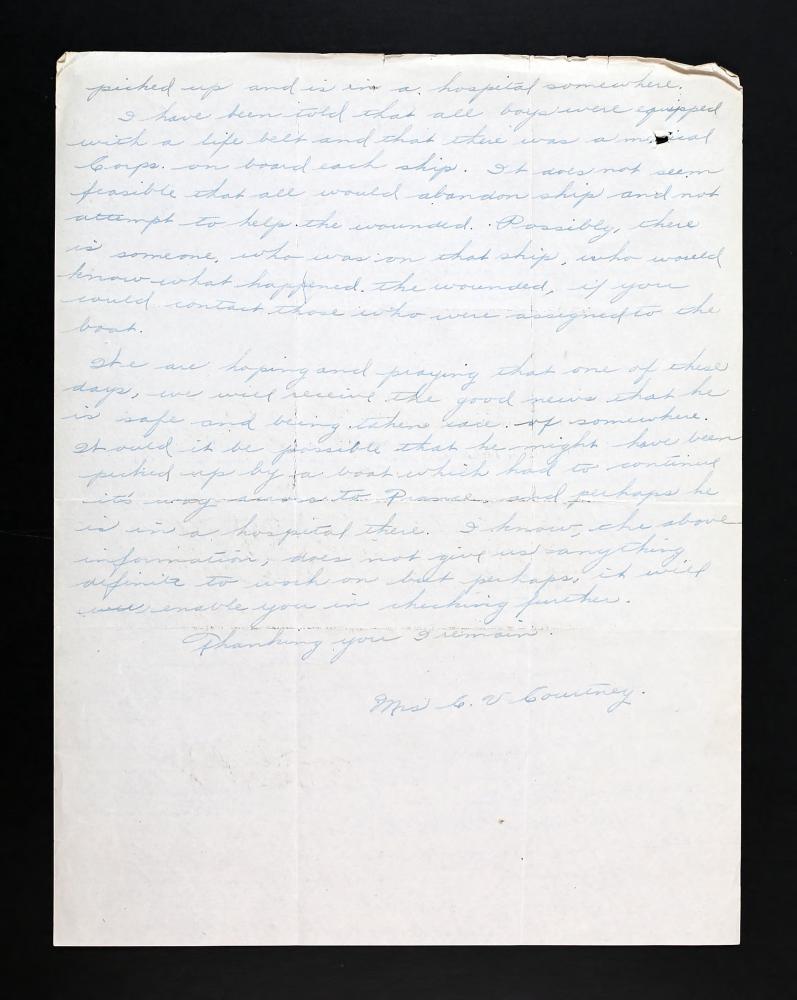 picked up and is in a hospital somewhere.
I have been told that all boys were equipped
with a life belt and that there was a medical
Corps. on board each ship. It does not seem
feasible that all would abandon ship and not
attempt to help the wounded. Possibly, there
is someone, who was on that ship, who would
know what happened the wounded, if you
would contact those who were assigned to the
boat.
We are hoping and praying that one of these
days, we will receive the good news that he
is safe and being taken care of somewhere.
Would it be possible that he might have been
picked up by a boat which had to continue
it's way across to France and perhaps he
is in a hospital there. I know, the above
information, does not give us anything
definite to work on but perhaps, it will
will enable you in checking further.
Thanking you I remain.
Mrs C. V Courtney.